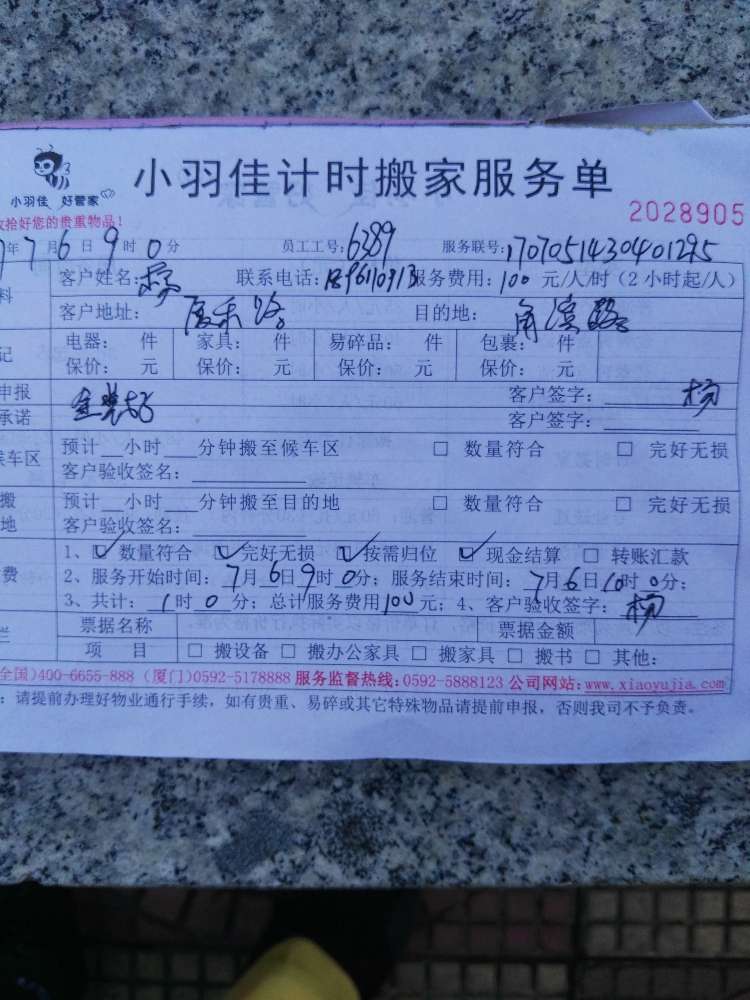 小羽佳 好管家
小羽佳计时搬家服务单
2028905
收拾好您的贵重物品！
年7月6日9时0分 员工工号：6389 服务联号：1707051430401295
客户姓名：杨 联系电话： 服务费用：100元/人/时（2小时起/人）
客户地址： 目的地：角滨路
电器： 件 家具： 件 易碎品： 件 包裹： 件
保价： 元 保价： 元 保价： 元 保价： 元
申报 客户签字：杨
承诺 客户签字：
候车区 预计 小时 分钟搬至候车区 □ 数量符合 □ 完好无损
客户验收签名：
搬 预计 小时 分钟搬至目的地 □ 数量符合 □ 完好无损
地 客户验收签名：
1、☑ 数量符合 ☑ 完好无损 ☑ 按需归位 ☑ 现金结算 □ 转账汇款
费 2、服务开始时间：7月6日9时0分；服务结束时间：7月6日10时0分；
3、共计：1时0分；总计服务费用100元；4、客户验收签字：杨
票据名称 票据金额
项 目 □ 搬设备 □ 搬办公家具 □ 搬家具 □ 搬书 □ 其他：
全国)400-6655-888 (厦门)0592-5178888 服务监督热线：0592-5888123 公司网站：www.xiaoyujia.com
：请提前办理好物业通行手续，如有贵重、易碎或其它特殊物品请提前申报，否则我司不予负责。